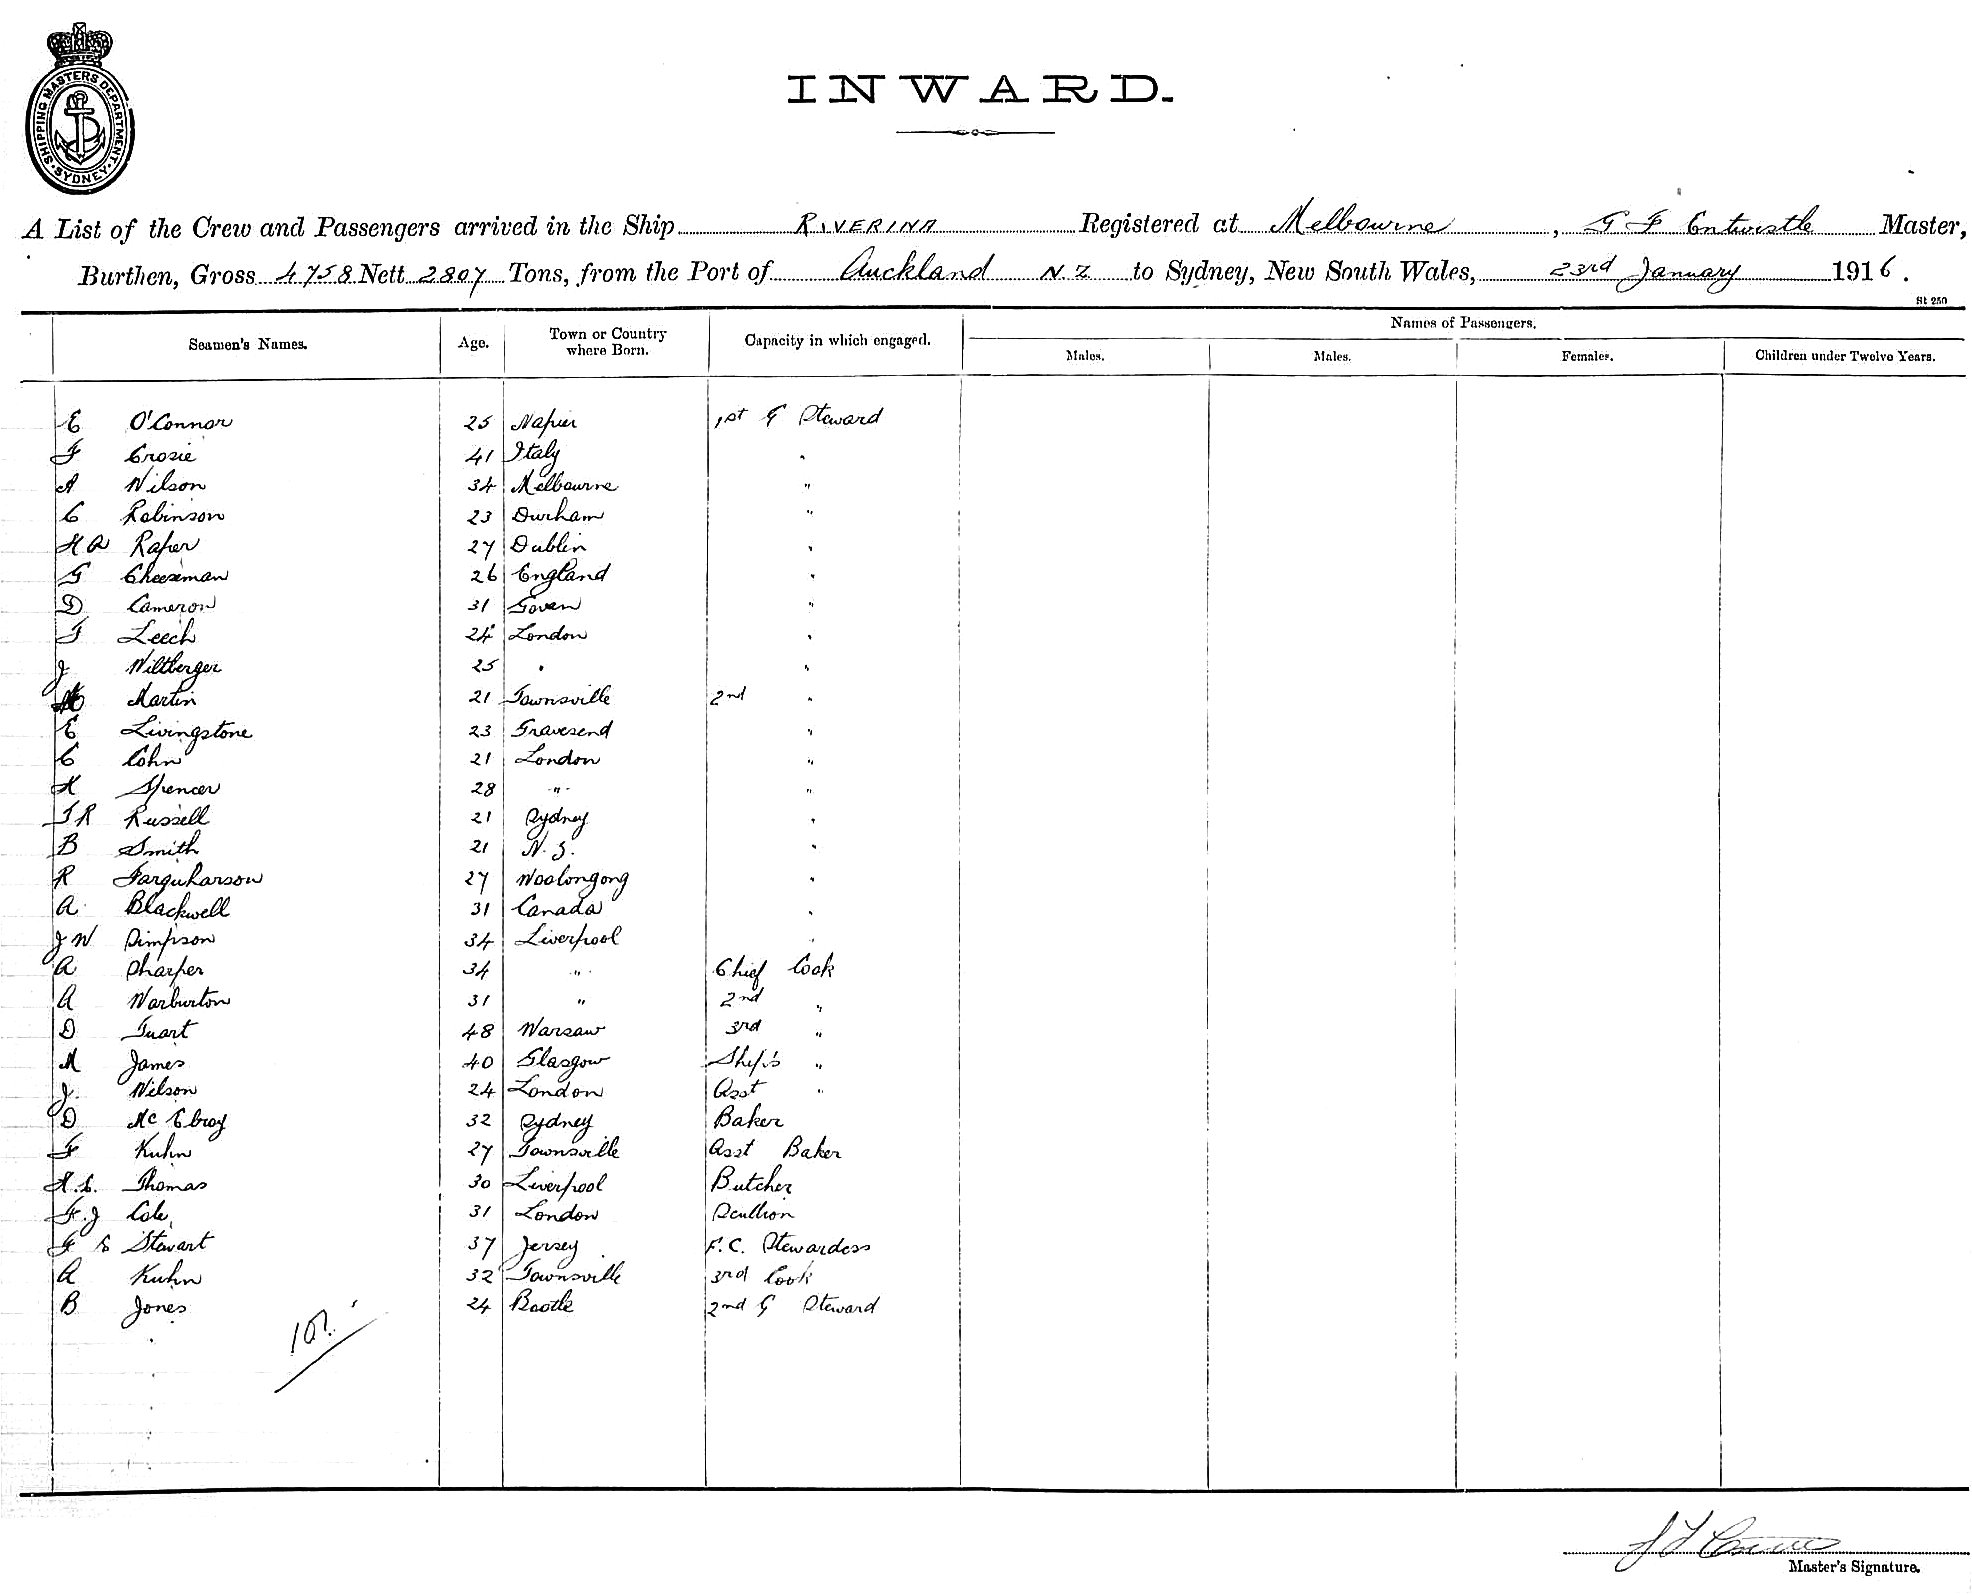 SHIPPING MASTERS DEPARTMENT. SYDNEY
INWARD.
A List of the Crew and Passengers arrived in the Ship RIVERINA Registered at Melbourne, G F Entwistle Master,
Burthen, Gross 4758 Nett 2807 Tons, from the Port of Auckland N.Z to Sydney, New South Wales, 23rd January 1916.
St 250
Seamen's Names. Age. Town or Country where Born. Capacity in which engaged. Names of Passengers.
Males. Males. Females. Children under Twelve Years.
E O'Connor 25 Napier 1st G Steward
F Crosie 41 Italy "
A Wilson 34 Melbourne "
C Robinson 23 Durham "
H A Raper 27 Dublin "
G Cheeseman 26 England "
D Cameron 31 Govan "
F Leech 24 London "
J Wiltberger 25 " "
Martin 21 Townsville 2nd "
E Livingstone 23 Gravesend "
C Cohn 21 London "
H Spencer 28 " "
T R Russell 21 Sydney "
B Smith 21 N.Z. "
R Farquharson 27 Woolongong "
A Blackwell 31 Canada "
J W Simpson 34 Liverpool "
A Sharper 34 " Chief Cook
A Warburton 31 " 2nd "
D Tuart 48 Warsaw 3rd "
M James 40 Glasgow Ship's "
J. Wilson 24 London Asst "
D McElroy 32 Sydney Baker
F Kuhn 27 Townsville Asst Baker
H.C. Thomas 30 Liverpool Butcher
F.J Cole 31 London Scullion
F E Stewart 37 Jersey F.C. Stewardess
A Kuhn 32 Townsville 3rd Cook
B Jones 24 Bootle 2nd G Steward
107.
Master's Signature.